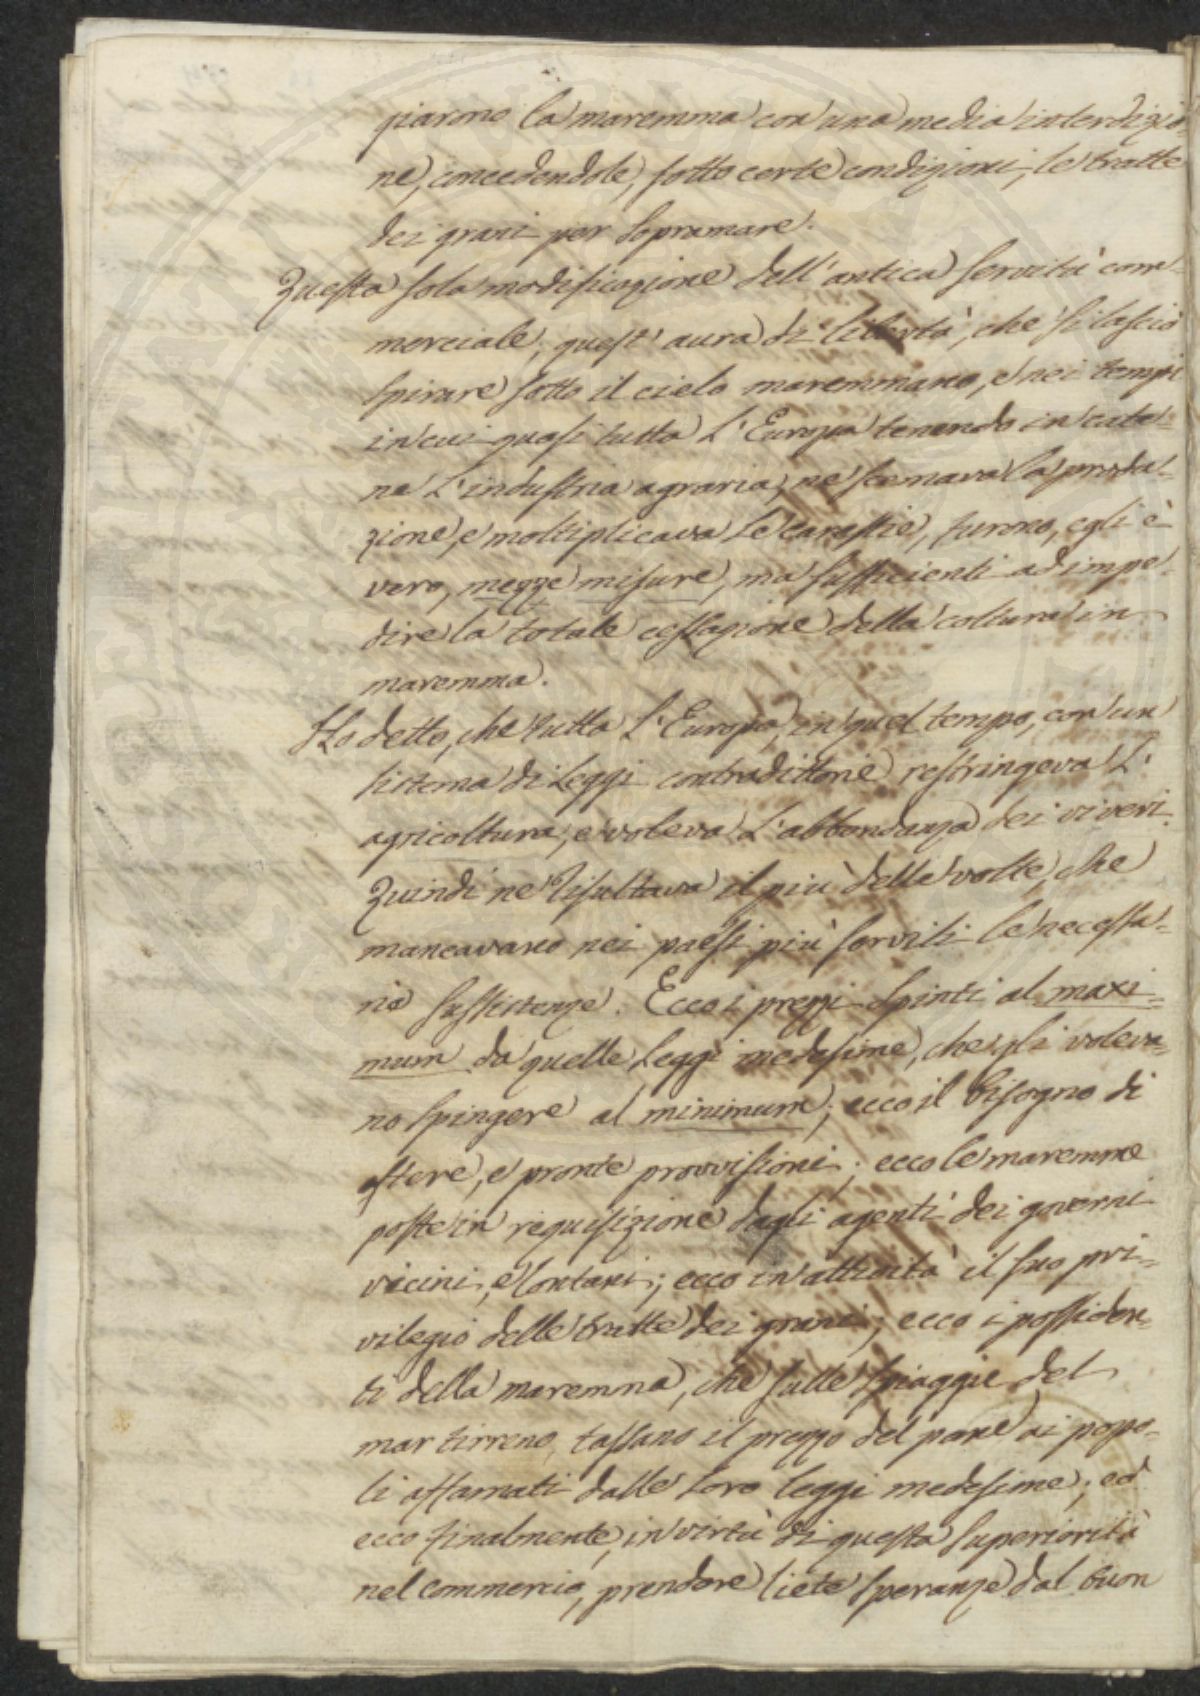 giarono la maremma con una media interdizio-
ne, concedendole, sotto certe condizioni, le tratte
dei grani per sopramare.
Questa sola modificazione dell'antica servitù com-
merciale, quest'aura di libertà, che si lasciò
spirare sotto il cielo maremmano, e nei tempi
in cui quasi tutta l'Europa tenendo in cate-
ne l'industria agraria, ne scemava la produ-
zione, e moltiplicava le carestie, furono, egli è
vero, mezze misure, ma sufficienti ad impe-
dire la totale cessazione della coltura in
maremma.
Ho detto, che tutta l'Europa, in quel tempo, con un
sistema di Leggi contradittorie restringeva l'
agricoltura, e voleva l'abbondanza dei viveri.
Quindi ne risultava il più delle volte, che
mancavano nei paesi più servili le necessa-
rie sussistenze. Ecco i prezzi spinti al maxi-
mum da quelle Leggi medesime, che gli voleva-
no spingere al minimum; ecco il bisogno di
estere, e pronte provvisioni; ecco le maremme
poste in requisizione dagli agenti dei governi
vicini, e lontani; ecco in attività il suo pri-
vilegio delle tratte dei grani; ecco i possiden-
ti della maremma, che sulle spiaggie del
mar tirreno, tassano il prezzo del pane ai popo-
li affamati dalle loro leggi medesime; ed
ecco finalmente, in virtù di questa superiorità
nel commercio, prendere liete speranze dal buon